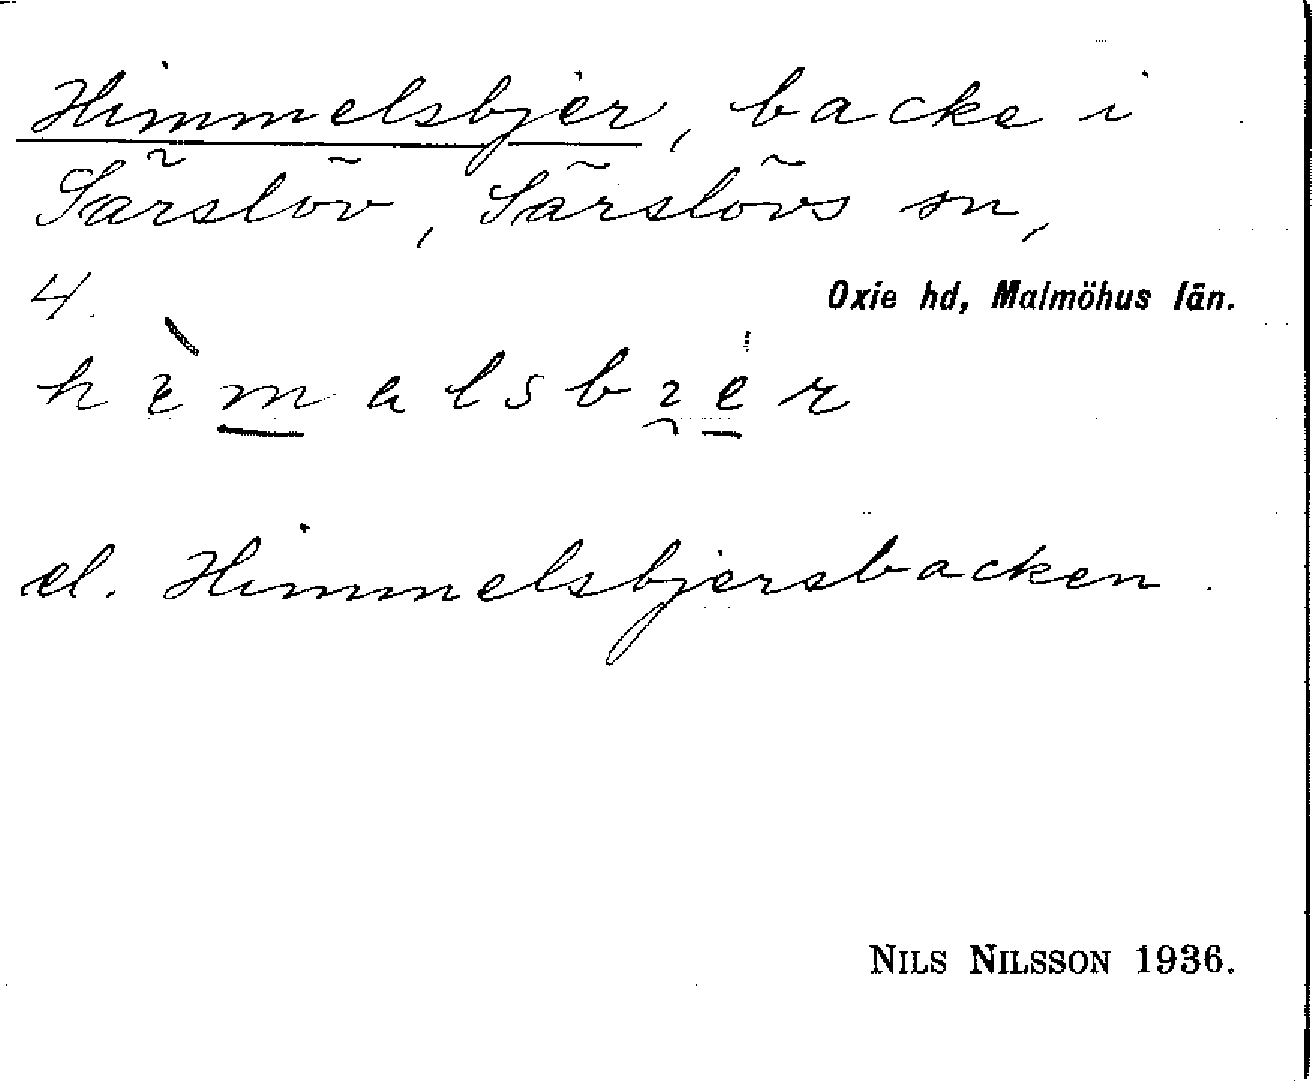 Himmelsbjer, backe i
Särslöv, Särslövs sn,
4. Oxie hd, Malmöhus län.
el. Himmelsbjersbacken.
NILS NILSSON 1936.